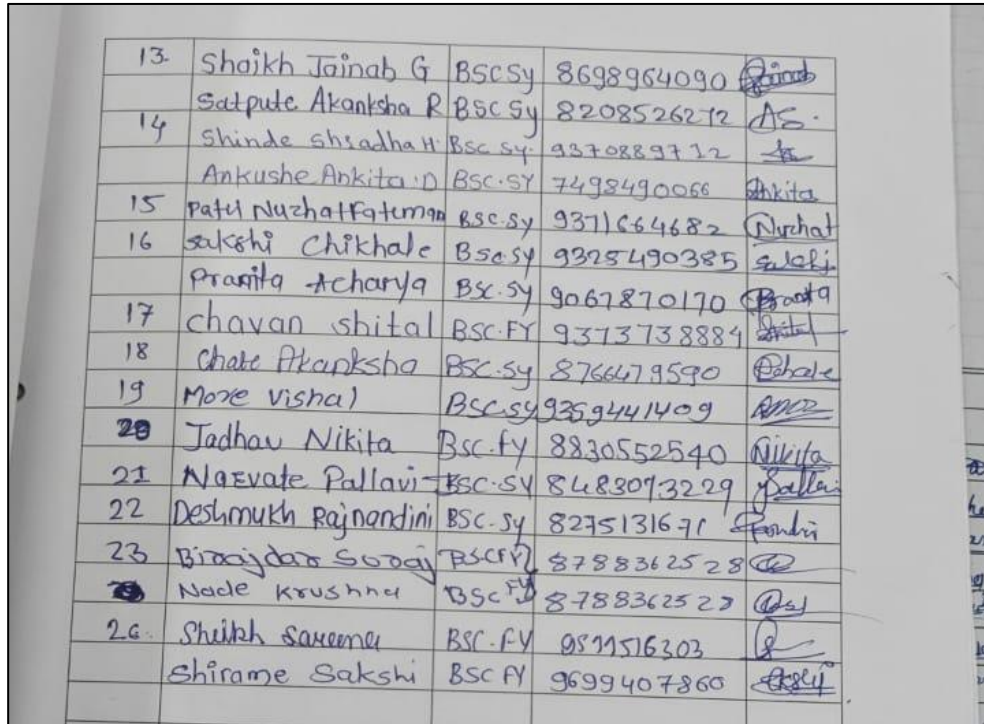 13. Shaikh Jainab G BSC Sy 8698964090 Jainab
Satpute Akanksha R BSC Sy 8208526272 AS.
14 Shinde Shradha H. BSC Sy. 9370889712
Ankushe Ankita.D BSC.SY 7498490066 Ankita
15 Patel Nuzhatfatemah BSC.SY 9371664682 Nuzhat
16 Sakshi Chikhale BSC.SY 9325490385 Sakshi
Pranita Acharya BSC.SY 9067870170 Pranita
17 Chavan Shital BSC.FY 9373738884 Shital
18 Chate Akanksha BSC.Sy 8766479590 Achate
19 More Vishal BSC.SY 9359441409
20 Jadhav Nikita BSC.FY 8830552540 Nikita
21 Narvate Pallavi BSC.SY 8483073229 Pallavi
22 Deshmukh Rajnandini BSC.Sy 8275131671
23 Birajdar Suraj BSCFY 8788362528
Nade Krushna BSC FY 8788362528
26. Sheikh Sareena BSC.FY 9511516303
Shirame Sakshi BSC FY 9699407860